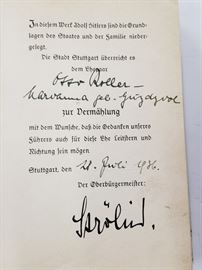 In diesem Werk Adolf Hitlers sind die Grund-
lagen des Staates und der Familie nieder-
gelegt.
Die Stadt Stuttgart überreicht es
dem Ehepaar
Otto Roller –
geb.
zur Vermählung
mit dem Wunsche, daß die Gedanken unseres
Führers auch für diese Ehe Leitstern und
Richtung sein mögen
Stuttgart, den 21. Juli 1936.
Der Oberbürgermeister:
Strölin.